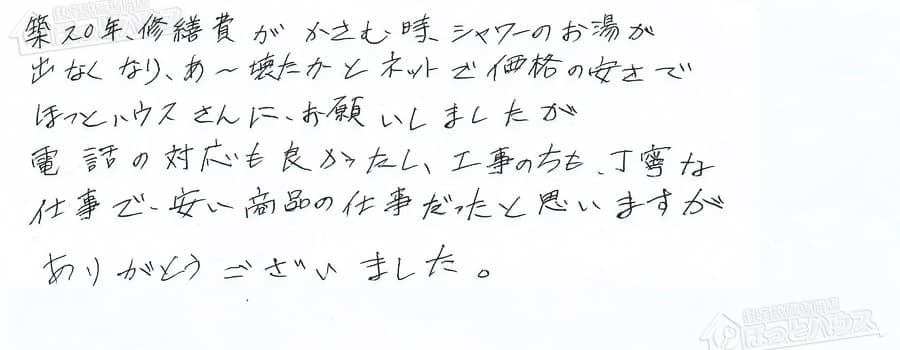 築20年、修繕費がかさむ時、シャワーのお湯が
出なくなり、あ～壊たかとネットで価格の安さで
ほっとハウスさんに、お願いしましたが
電話の対応も良かったし、工事のちも、丁寧な
仕事で、安い商品の仕事だったと思いますが
ありがとうございました。
ほっとハウス